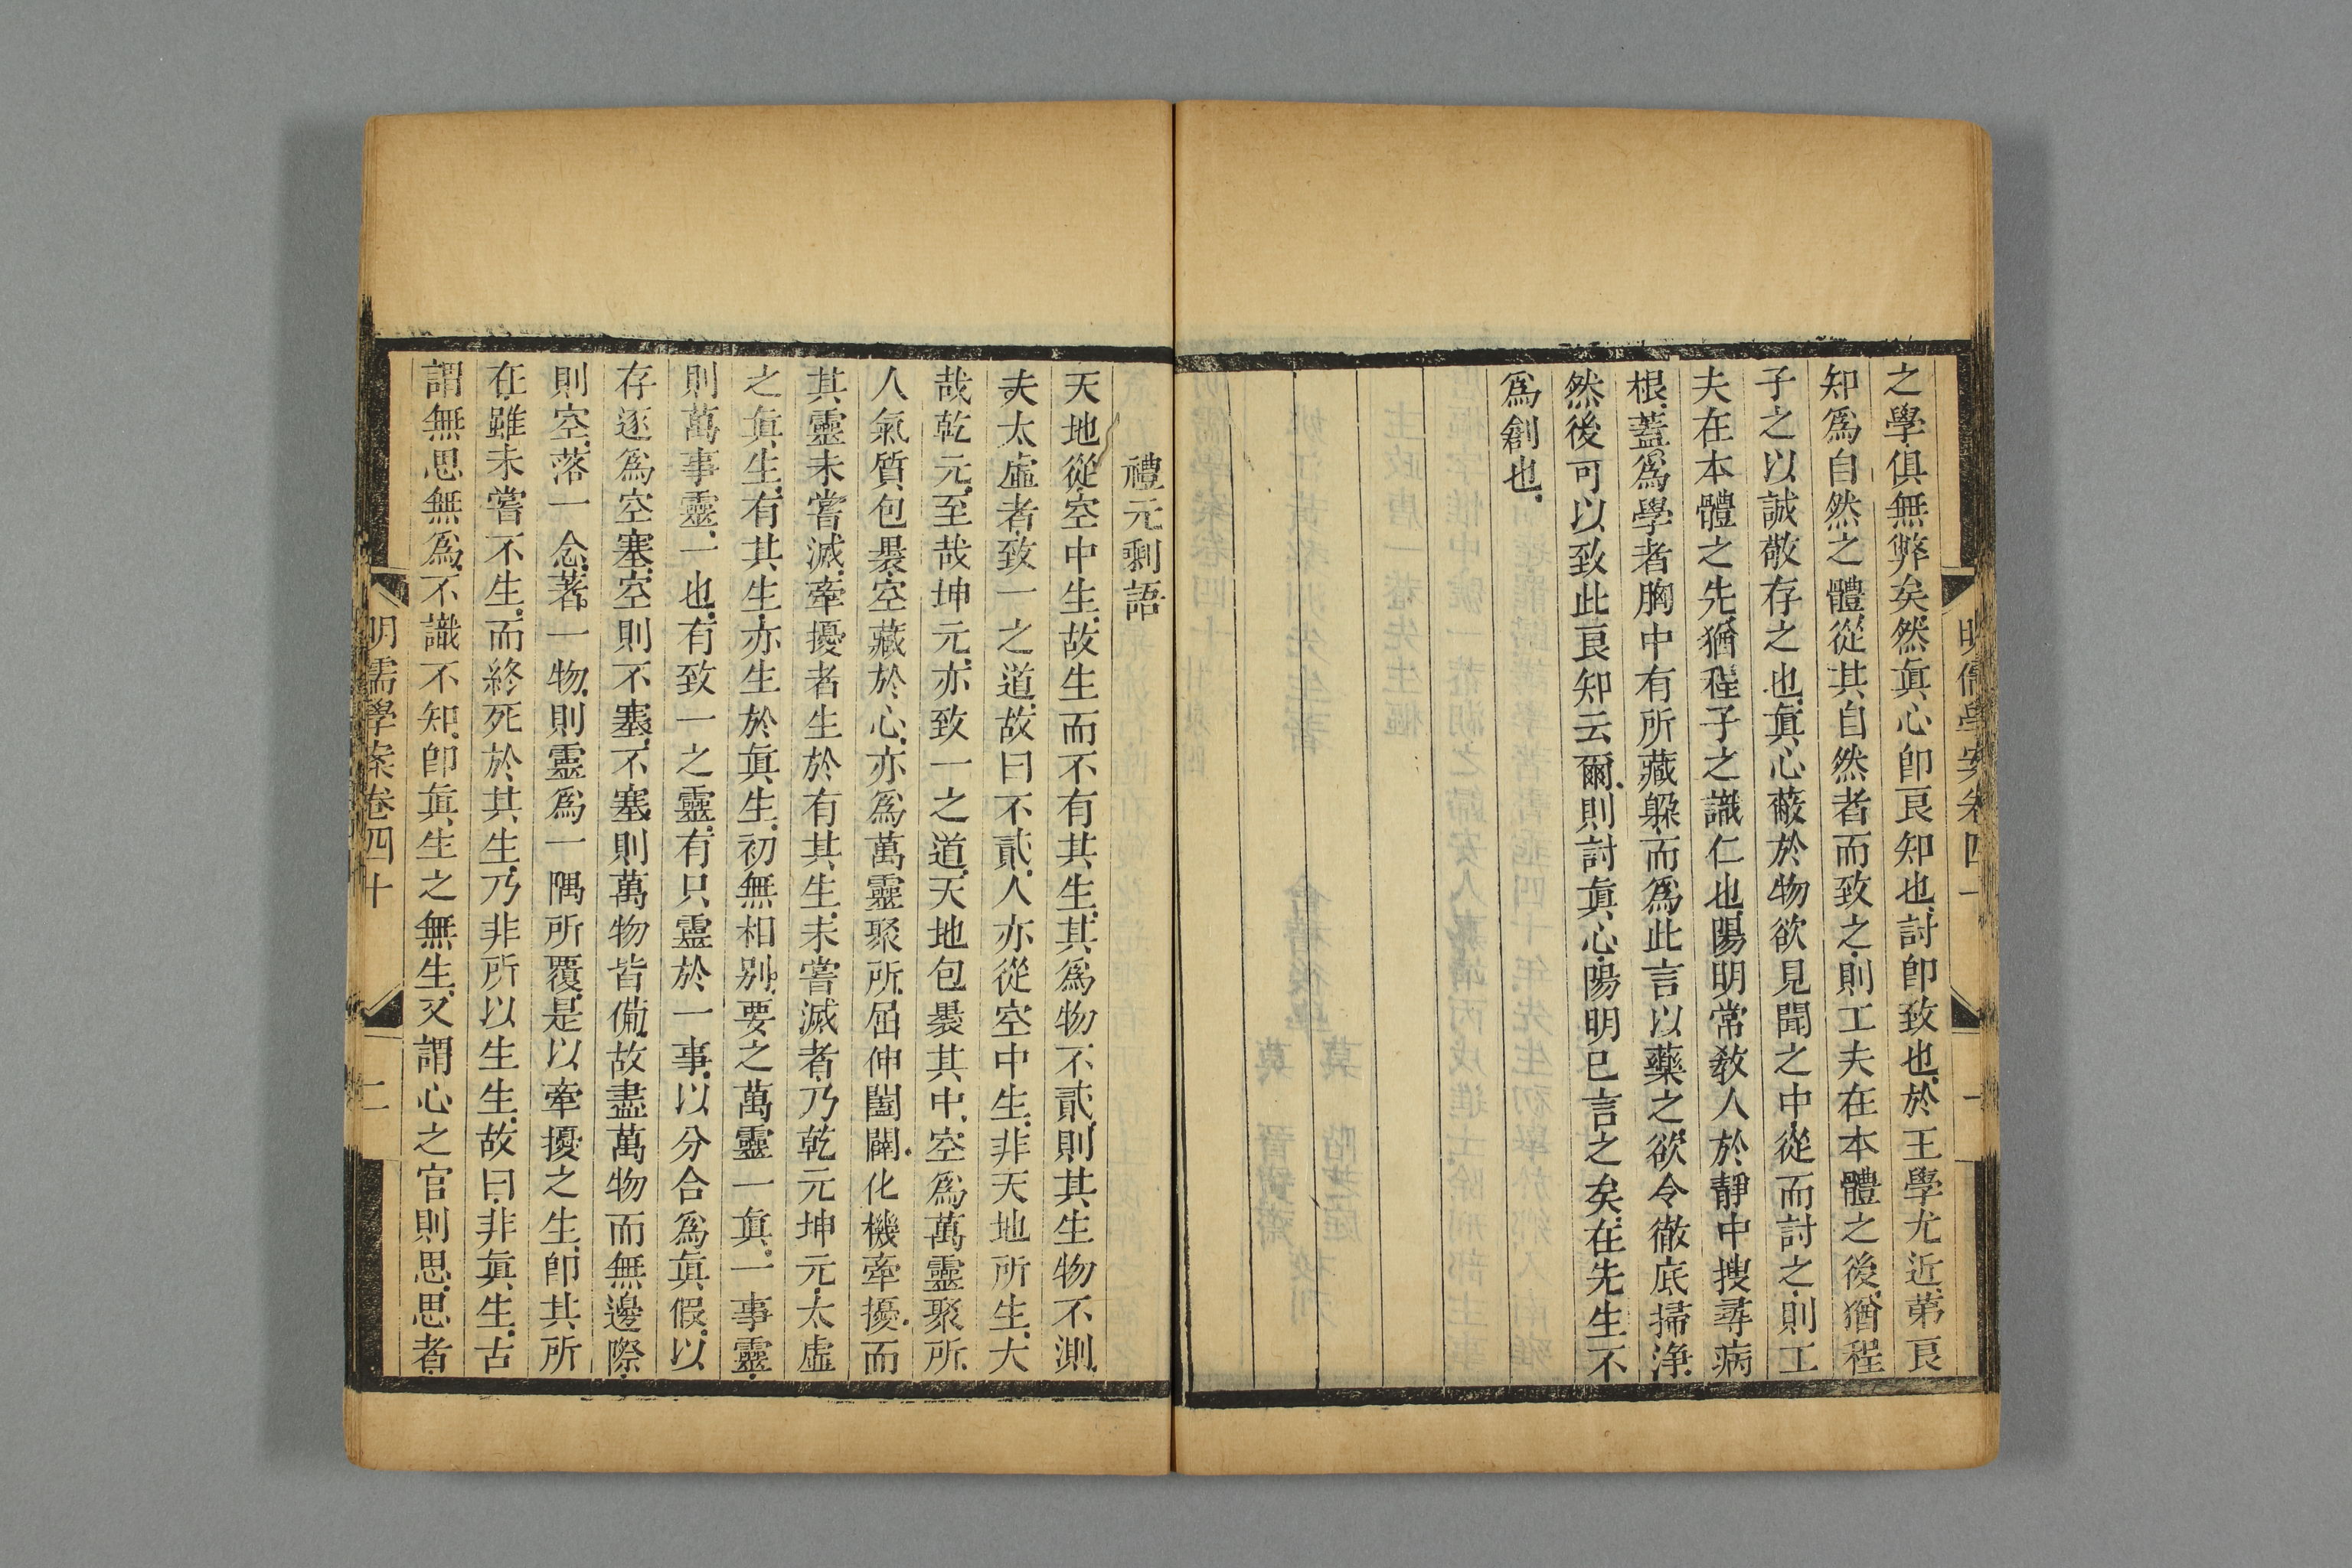 之學俱無弊矣然眞心卽良知也討卽致也於王學尤近第良
知爲自然之體從其自然者而致之則工夫在本體之後猶程
子之以誠敬存之也眞心蔽於物欲見聞之中從而討之則工
夫在本體之先猶程子之識仁也陽明常敎人於靜中搜尋病
根蓋爲學者胸中有所藏躱而爲此言以藥之欲令徹底掃淨
然後可以致此良知云爾則討眞心陽明已言之矣在先生不
爲創也
禮元剩語
天地從空中生故生而不有其生其爲物不貳則其生物不測
夫太虛者致一之道故曰不貳人亦從空中生非天地所生大
哉乾元至哉坤元亦致一之道天地包褁其中空爲萬靈聚所
人氣質包褁空藏於心亦爲萬靈聚所屈伸闔闢化機牽擾而
其靈未嘗滅牽擾者生於有其生未嘗滅者乃乾元坤元太虛
之眞生有其生亦生於眞生初無相別要之萬靈一眞一事靈
則萬事靈一也有致一之靈有只靈於一事以分合爲眞假以
存逐爲空塞空則不塞不塞則萬物皆備故盡萬物而無邊際
則空落一念著一物則靈爲一隅所覆是以牽擾之生卽其所
在雖未嘗不生而終死於其生乃非所以生生故曰非眞生古
謂無思無爲不識不知卽眞生之無生又謂心之官則思思者
明儒學案卷四十
二